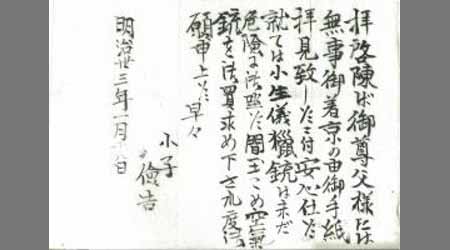 拝啓陳ば御尊父様には
無事御着京の由御手紙
拝見致し候に付安心仕候
就ては小生儀猟銃は未だ
危険に候間玉こめ空氣
銃を御買求め下され度
願申上候 早々
小子
儉吉
明治廿三年一月 日